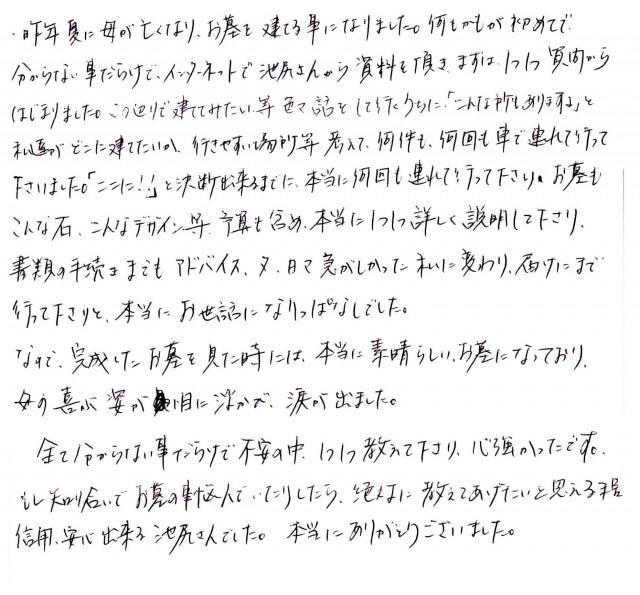 ・昨年夏に母が亡くなり、お墓を建てる事になりました。何もかもが初めてで
分からない事だらけで、インターネットで池尻さんから資料を頂き、まずは1つ1つ質問から
はじまりました。この辺りで建ててみたい等色々話をして行くうちに、「こんな所もありますよ」と
私達がどこに建てたいか、行きやすい場所等考えて、何件も、何回も車で連れて行って
下さいました。「ここに!!」と決断出来るまでに、本当に何回も連れて行って下さり。お墓も
こんな石、こんなデザイン等、予算も含め、本当に1つ1つ詳しく説明して下さり、
書類の手続きまでもアドバイス、又、日々急がしかった私に変わり、届けにまで
行って下さりと、本当にお世話になりっぱなしでした。
なので、完成したお墓を見た時には、本当に素晴らしいお墓になっており、
母の喜ぶ姿が目に浮かび、涙が出ました。
全て分からない事だらけで不安の中、1つ1つ教えて下さり、心強かったです。
もし知り合いでお墓の事悩んでいたりしたら、絶対に教えてあげたいと思える程
信用、安心出来る池尻さんでした。本当にありがとうございました。